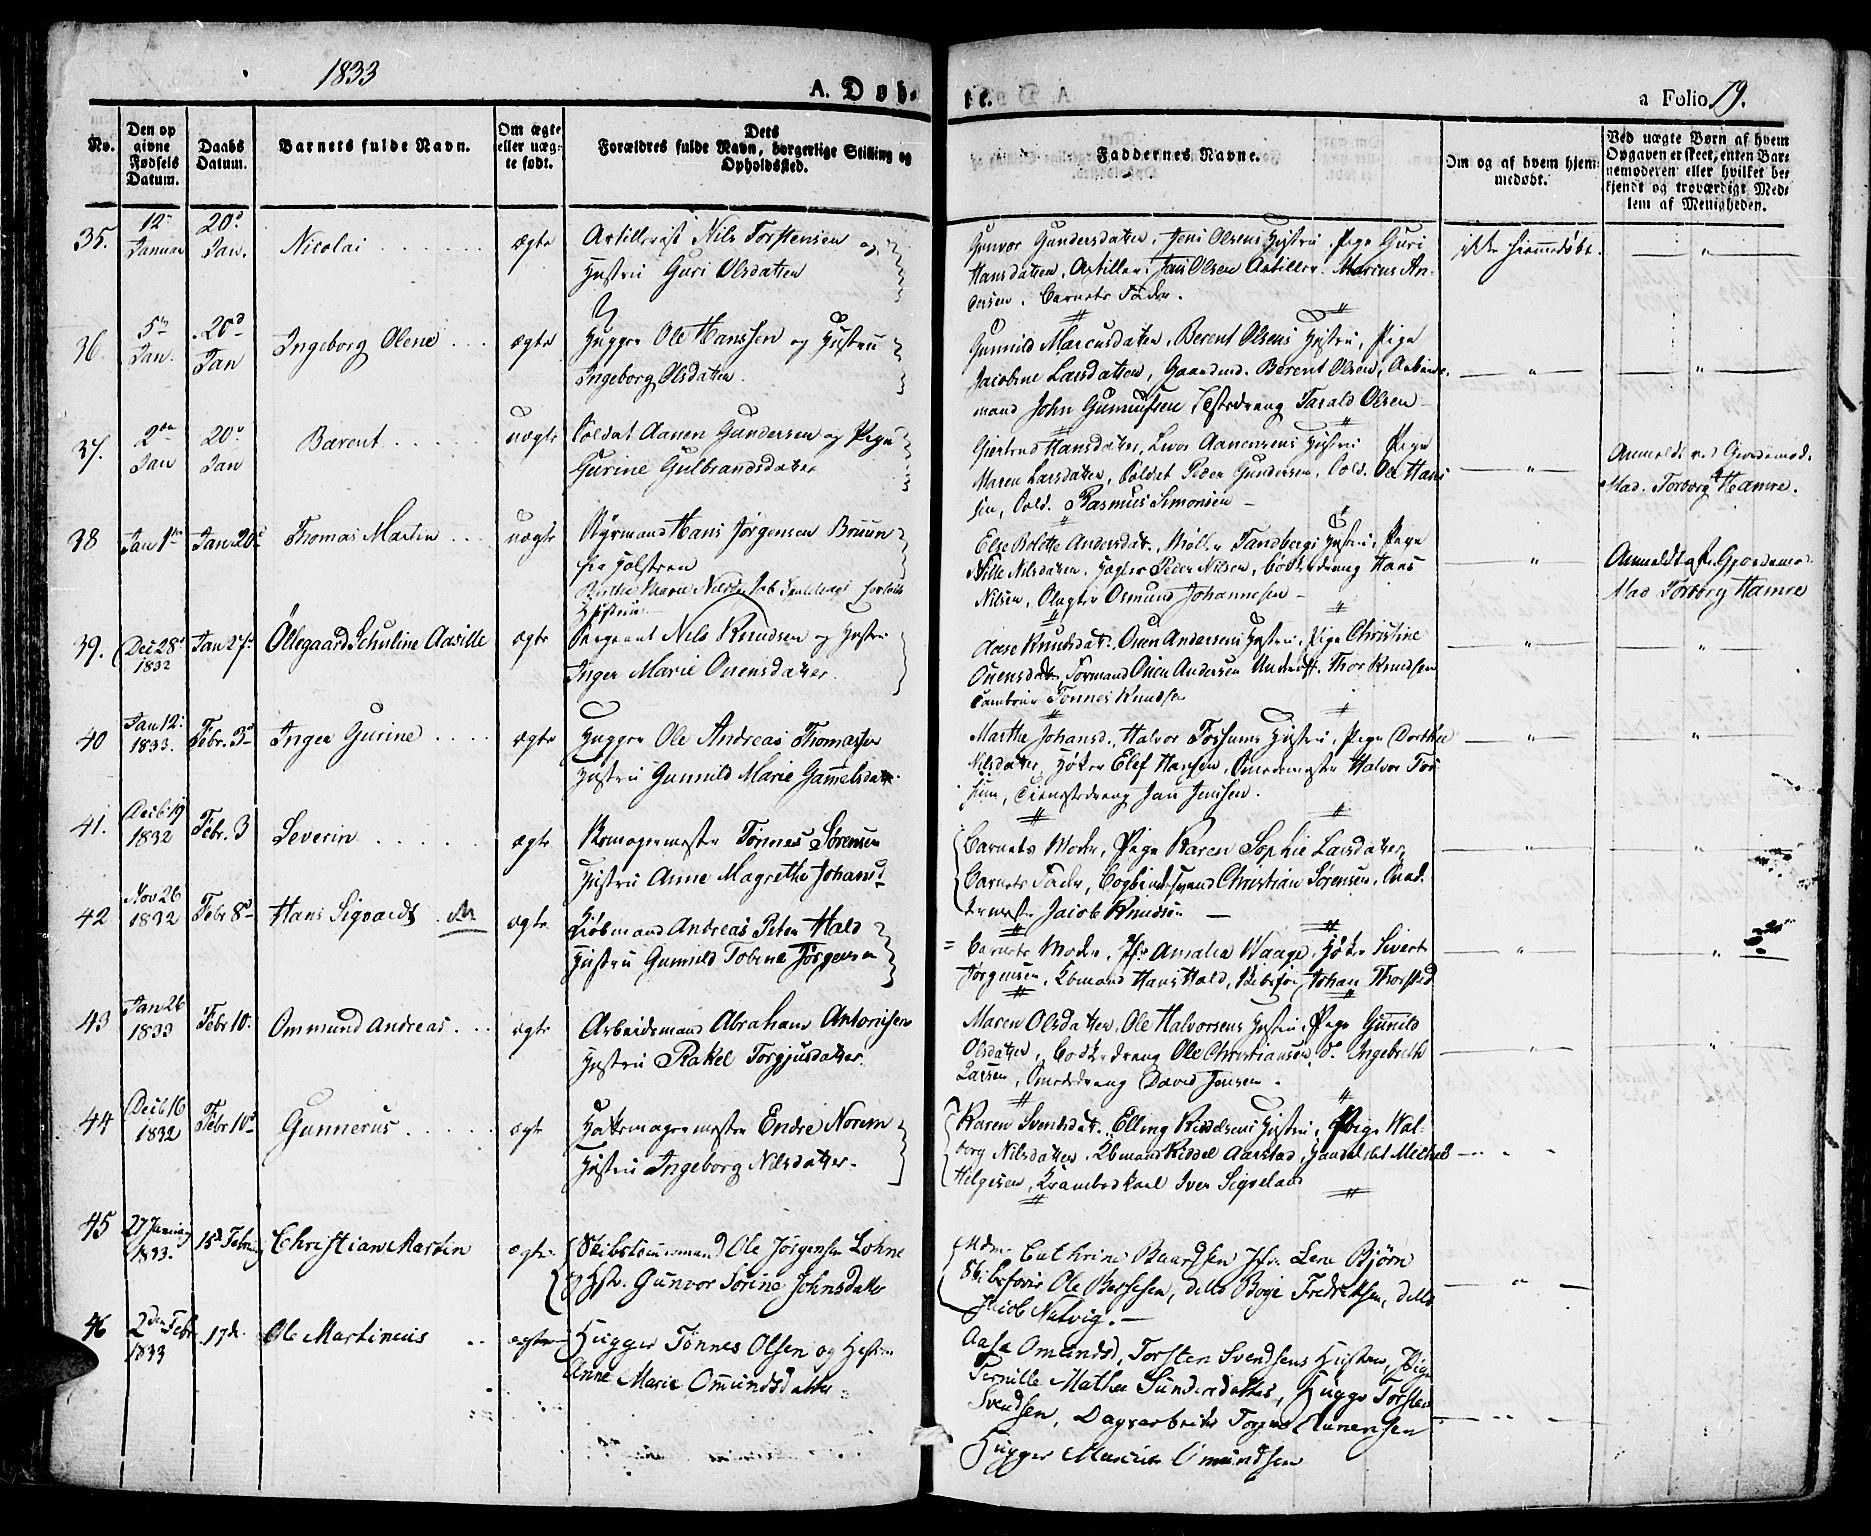 1833
A. Døb-
te.
a Folio 19.
No.
Den op
givne
Fødsels
Datum.
Daabs
Datum.
Barnets fulde Navn.
Om ægte
eller uæg-
te født.
Dets
Forældres fulde Navn, borgerlige Stilling og
Opholdssted.
Faddernes Navne.
Om og af hvem hjem-
medøbt.
Ved uægte Børn af hvem
Opgaven er skeet, enten Bar-
nemoderen eller hvilket be-
kjendt og troværdigt Med-
lem af Menigheden.
35.
12te
Januar
20d
Jan.
Nicolai
ægte
Artillerist Nils Torstensen og
Hustru Guri Olsdatter
Gunvor Gundersdatter, Jens Olsens Hustru, Pige Guri
Hansdatter, Artiller. Jens Olsen Artiller. Marcus An-
dersen, Barnets Fader.
ikke hjemmedøbt.
36.
5te
Jan.
20d
Jan
Ingeborg Olene
ægte
Hugger Ole Hanssen og Hustru
Ingeborg Olsdatter.
Gunnild Marcusdatter, Berent Olsens Hustru, Pige
Jacobine Larsdatter, Gaardmd. Berent Olsen, Arbeids-
mand John Gunnufsen Tjestedreng Tarald Olsen
37.
2den
Jan
20d
Jan
Barent
uægte
Soldat Aanen Gundersen og Pige
Gurine Gulbrandsdatter
Giertrud Hansdatter, Aanensens Hustru Pige
Maren Larsdatter, Soldat Peder Gundersen, Sold. Ole Han-
sen, Sold. Rasmus Simonsen
Anmeldt ved Giordemod.
Mad. Torborg Hamre.
38
Jan 1te
Jan 20d
Thomas Martin
uægte
Styrmand Hans Jørgensen Bruun
fra Holsteen
Hustru
Else Bolette Andersdat., Møller Tandbergs Hustru, Pige
Sille Nilsdatter, Peder Nilsen, Bødkerdreng Hans
Nilsen, Osmund Johannesen
Anmeldt af Giordemod.
Mad Torborg Hamre
39.
Dec 28d
1832
Jan 27d
Øllegaard Aasille
ægte
Sergeant Nils Knudsen og Hustru
Inger Marie Ouensdatter.
Aase Knudsdat. Ouen Andersens Hustru, Pige Christine
Ouensdat, Formand Ouen Andersen Thor Knudsen
Tambour Tønnes Knudsen
40
Jan 12.
1833.
Febr. 3d
Inger Gurine
ægte
Hugger Ole Andreas Thomassen
Hustru Gunnild Marie Gammelsdatt.
Marthe Johansd., Halvor Fossums Hustru, Pige Dorthee
Nilsdatter, Høker Elef Hansen, Halvor Fos-
sum, Tienestedreng Jan Jenssen.
41.
Decb. 19
1832
Febr. 3
Severin
ægte
Tønnes Sørensen
Hustru Anne Magrethe Johansd.
Barnets Moder, Pige Karen Sophie Larsdatter,
Barnets Fader, Christian Sørensen,
Jacob Knudsen
42
Nov 26
1832
Febr 8d
Hans Sigvardt
ægte
Kiøbmand Andreas Peter Hald
Hustru Gunnild Tobine Jørgensen
Barnets Moder, Jfr. Amalia Waage, Høker Sivert
Jørgensen, Kbmand Hans Hald, Johan Thorsted
43
Jan 26
1833
Febr 10.
Ommund Andreas
ægte
Arbeidsmand Abraham Antonisen
Hustru Rakel Torgjusdatter.
Maren Olsdatter, Ole Halvorsens Hustru, Pige Gunild
Olsdatter, Bødkerdreng Ole Christiansen, do Ingebreth
Larsen, Smededreng David Jensen.
44
Decb 16
1832
Febr. 10d
Gunnerus
ægte
Hattemagermester Endre Norem
Hustru Ingeborg Nilsdatter.
Karen Svendsdat. Elling Hustru, Pige Wal-
borg Nilsdatter, Kbmand Aarstad, Michel
Helgesen, Krambodkarl Iver Sigveland
45
27 Januar
1833.
15d Februar
Christian Martin
ægte
Skibstømmermand Ole Jørgensen Lohne
og Hstr. Gunvor Sørine Johnsdatter
Mdm. Cathrine Baardsen Jfr. Lene Bjørn
Skibsfører Ole Berhesen, ditto Boye Fredriksen, ditto
Jacob Natvig.
46
2den Febr
1833
17d.
Ole Martinius
ægte
Hugger Tønnes Olsen og Hustru
Anne Marie Omundsdatter
Aase Omundsd, Torsten Svendsens Hustru, Pige
Pernille Mathea Gundersdatter, Hugger Torsten
Svendsen, Dagsarbeider Torjus Aanensen
Hugger Marcus Omundsen